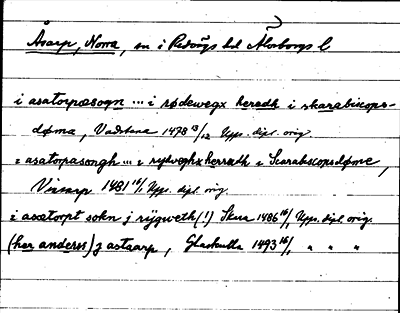 Åsarp, Norra, sn i Redvägs hd Älvsborgs l
i asatorpæsogn ... i rødewegx heredh i skarabiscops-
døma, Vadstena 1478 13/12 Upps. dipl. orig.
i asatorpasongh ... i rydweghxherrath i Scarabscopsdøme,
Vinsarp 1481 16/1 Upps. dipl. orig.
i asætorpt sokn j rijgweth (!) Skara 1486 16/1 Upps. dipl. orig.
(her anders) j astaarp, 1493 16/1 " " "